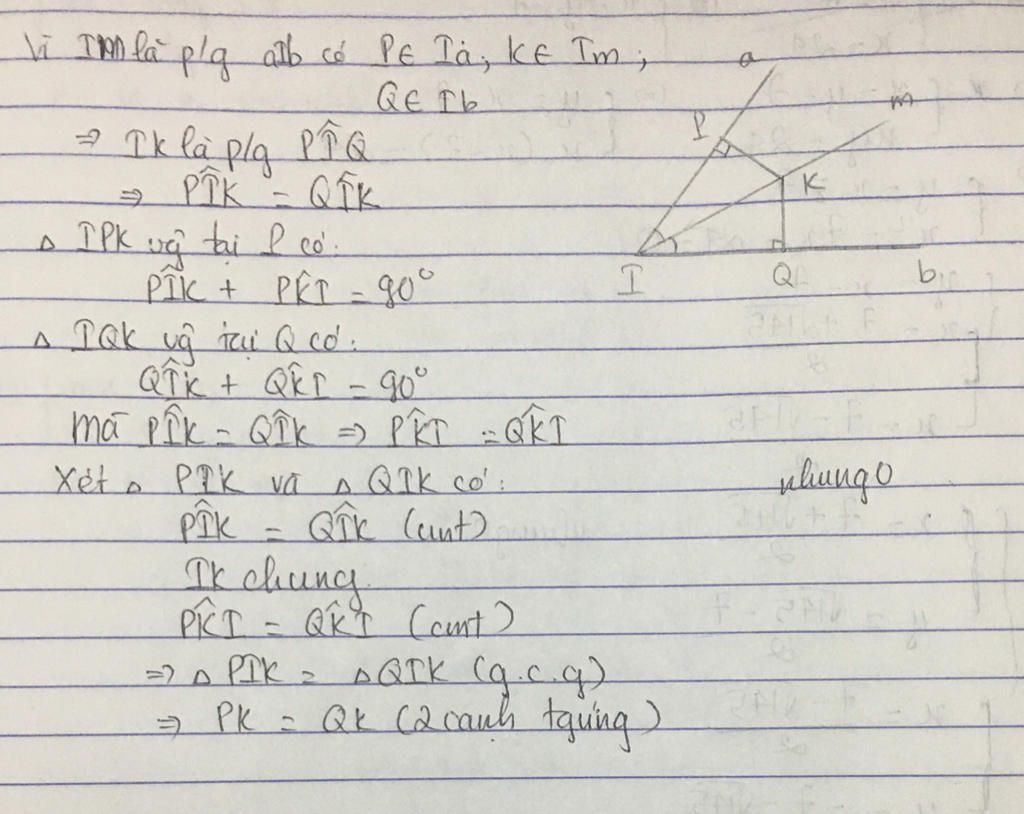 Vì Im là p/g aIb có P∈ Ia; K∈ Im;
Q∈ Ib
⇒ IK là p/g PÎQ
⇒ PÎK = QÎK
△ IPK vg̃ tại P có:
PÎK + PK̂I = 90°
△ IQK vg̃ tại Q có:
QÎK + QK̂I = 90°
mà PÎK = QÎK ⇒ PK̂I = QK̂I
Xét △ PIK và △ QIK có:
PÎK = QÎK (cmt)
IK chung
PK̂I = QK̂I (cmt)
⇒ △ PIK = △ QIK (g.c.g)
⇒ PK = QK (2 cạnh tgứng)
a
m
P
K
I
Q
b
nhung0